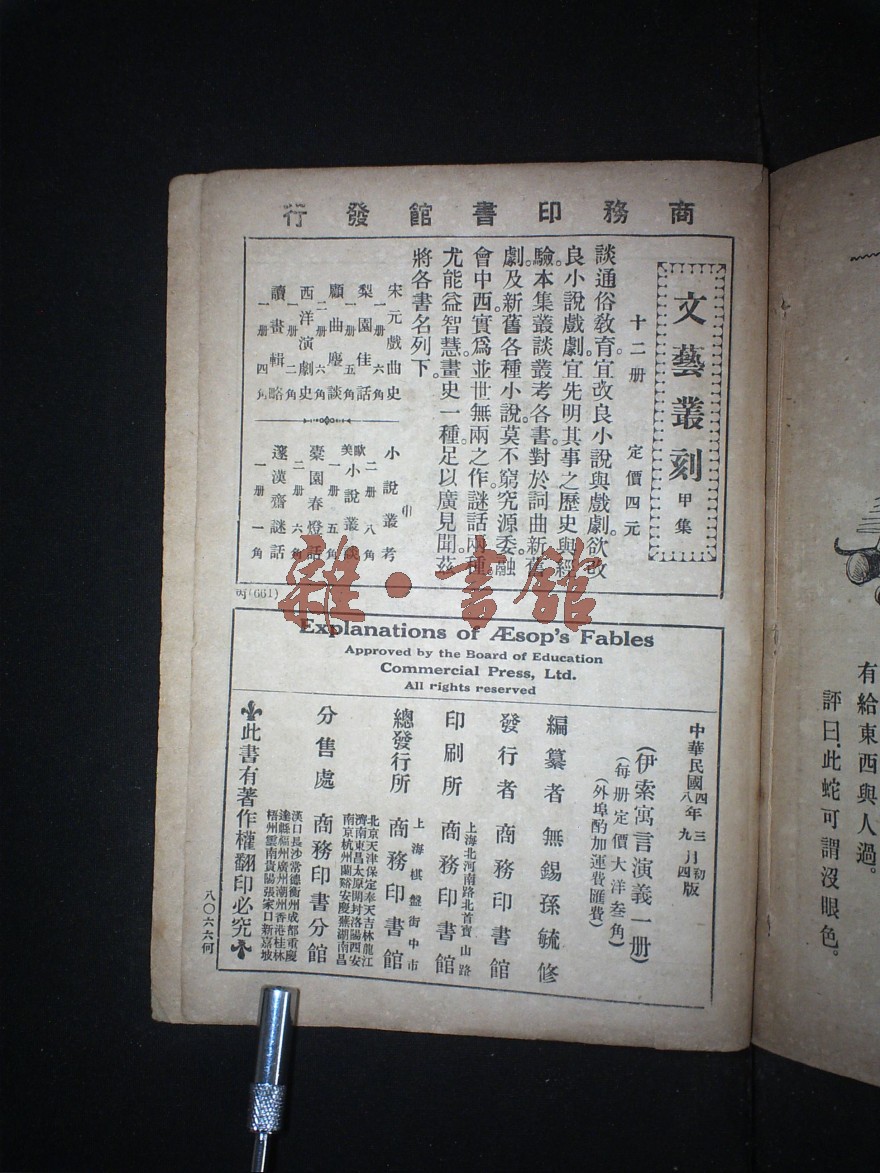 商務印書館發行
文藝叢刻甲集
十二册　定價四元
談通俗教育。宜改良小說與戲劇。欲改
良小說戲劇。宜先明其事之歷史與經
驗。本集叢談叢考各書。對於詞曲新舊
劇。及新舊各種小說。莫不窮究源委。融
會中西。實爲並世無兩之作。謎話兩種。
尤能益智慧。畫史一種。足以廣見聞。茲
將各書名列下。
宋元戲曲史
一册　六角
梨園佳話
一册　五角
顧曲麈談
二册　六角
西洋演劇史
一册　二角
讀畫輯略
一册　四角
小說叢考
二册　八角
歐美小說叢談
一册　五角
槖園春燈話
二册　六角
邃漢齋謎話
一册　一角
丙(661)
Explanations of Æsop's Fables
Approved by the Board of Education
Commercial Press, Ltd.
All rights reserved
中華民國四年三月初版
八年九月四版
(伊索寓言演義一册)
(每册定價大洋叁角)
(外埠酌加運費匯費)
編纂者　無錫孫毓修
發行者　商務印書館
上海北河南路北首寶山路
印刷所　商務印書館
上海棋盤街中市
總發行所　商務印書館
北京天津保定奉天吉林龍江
濟南東昌太原開封洛陽西安
南京杭州蘭谿安慶蕪湖南昌
分售處　商務印書分館
漢口長沙常德衡州成都重慶
達縣福州廣州潮州香港桂林
梧州雲南貴陽張家口新嘉坡
此書有著作權翻印必究
八〇六六何
有給東西與人過。
評曰。此蛇可謂沒眼色。
雜·書館